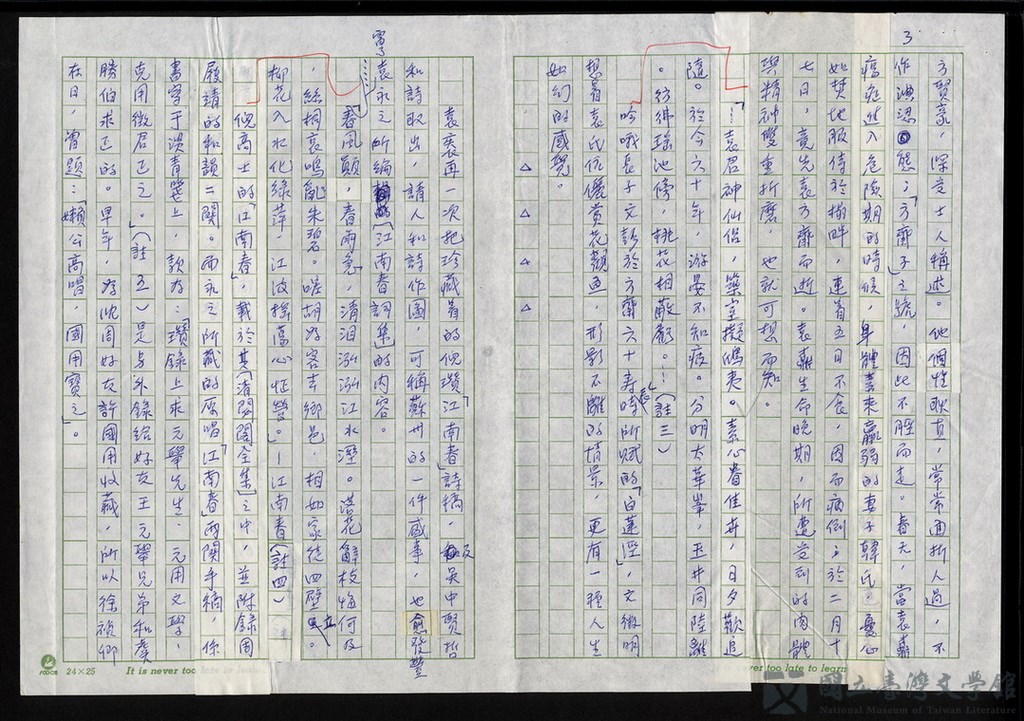 3
方賢豪,深受士人稱道。他個性耿直,常常面折人過,不
作淟涊態;「方齋子」之號,因此不脛而走。春天,當袁
病症進入危險期的時候,身體素來羸弱的妻子韓氏,憂心
如焚地服侍於榻畔,連着五日不食,因而病倒;於二月十
七日,竟先袁方齋而逝。袁生命晚期,所遭受到的肉體
與精神雙重折磨,也就可想而知。
「!袁君神仙侶,築室擬鴟夷。素心眷佳耦,日夕歡追
隨。於今六十年,游晏不知疲。分明大華峯,玉井同陸離
。彷彿瑤池傍,桃花相蔽虧。…!」(註三)
吟哦長子文於方齋六十壽辰時所賦的「白蓮涇」,文徵明
想着袁氏伉儷黃花顏色,形影不離的情景,更有一種人生
如幻的感覺。
△ △ △ △
袁袠再一次把珍藏着的倪瓚「江南春」詩稿,及吳中賢哲
和詩取出,請人和詩作圖,可稱蘇州的一件盛事,也愈發豐
富了袁永之所編「江南春詞集」的內容。
「春風顛,春雨急,清淚泓泓江水溼。落花辭枝悔何及
,絲桐哀鳴亂朱碧。嗟胡為客去鄉邑,相如家徒四壁立。
柳花入水化綠萍,江波搖蕩心怔營。」—江南春(註四)
倪高士的「江南春」,載於其「清閟閣全集」之中,並附錄周
履靖的和韻二闋。而永之所藏的原唱「江南春」兩闋手稿,係
書寫于淡青箋上,款為:「瓚錄上求元舉先生、元用文學、
克用徵君正之。」(註五)是另外錄給好友王元舉兄弟和虞
勝伯求正的。早年,為沈周好友許國用收藏,所以徐禎卿
在日,曾題:「嬾公高唱,國用寶之」。
24×25
It is never too late to
ver too late to learn
國立臺灣文學館
National Museum of Taiwan Literature